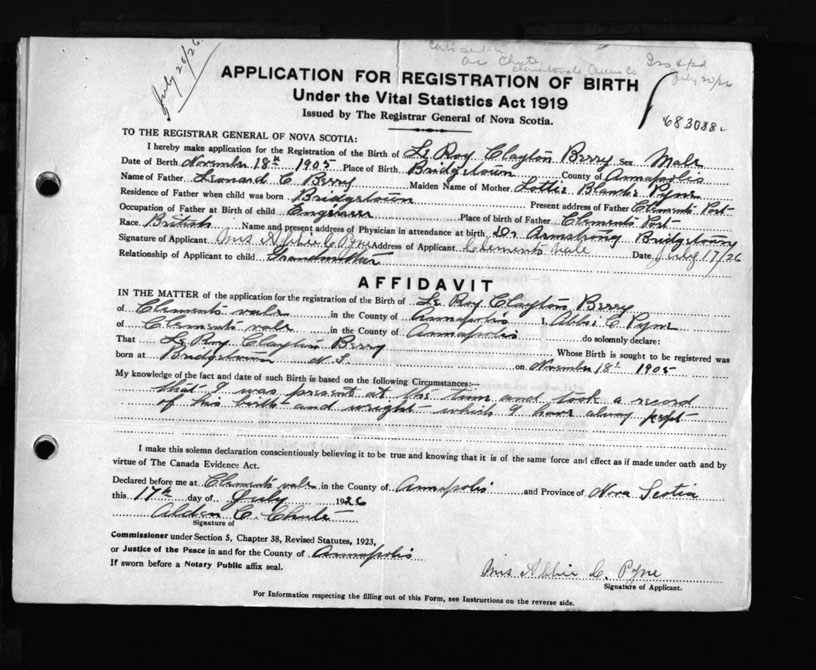 July 20/26
Clementsvale Annis Co
July 20/26
APPLICATION FOR REGISTRATION OF BIRTH
Under the Vital Statistics Act 1919
Issued by The Registrar General of Nova Scotia.
683088
TO THE REGISTRAR GENERAL OF NOVA SCOTIA:
I hereby make application for the Registration of the Birth of Le Roy Clayton Berry Sex Male
Date of Birth November 18th 1905 Place of Birth Bridgetown County of Annapolis
Name of Father Leonard C Berry Maiden Name of Mother Lottie Blanche Pyne
Residence of Father when child was born Bridgetown Present address of Father Clements Port
Occupation of Father at Birth of child Engraver Place of birth of Father Clements Port
Race British Name and present address of Physician in attendance at birth Dr Armstrong Bridgetown
Signature of Applicant Mrs Abbie C Pyne Address of Applicant Clements vale Date July 17/26
Relationship of Applicant to child Grandmother
AFFIDAVIT
IN THE MATTER of the application for the registration of the Birth of Le Roy Clayton Berry
of Clements vale in the County of Annapolis I, Abbie C Pyne
of Clements vale in the County of Annapolis do solemnly declare:
That Le Roy Clayton Berry Whose Birth is sought to be registered was
born at Bridgetown N.S. on November 18th 1905
My knowledge of the fact and date of such Birth is based on the following Circumstances:—
that I was present at the time and took a record
of his birth and wright which I have alway kept
I make this solemn declaration conscientiously believing it to be true and knowing that it is of the same force and effect as if made under oath and by
virtue of The Canada Evidence Act.
Declared before me at Clements vale in the County of Annapolis and Province of Nova Scotia
this 17th day of July 1926
Alden C. Chute
Signature of
Commissioner under Section 5, Chapter 38, Revised Statutes, 1923,
or Justice of the Peace in and for the County of Annapolis
If sworn before a Notary Public affix seal.
Mrs Abbie C. Pyne
Signature of Applicant.
For Information respecting the filling out of this Form, see Instructions on the reverse side.